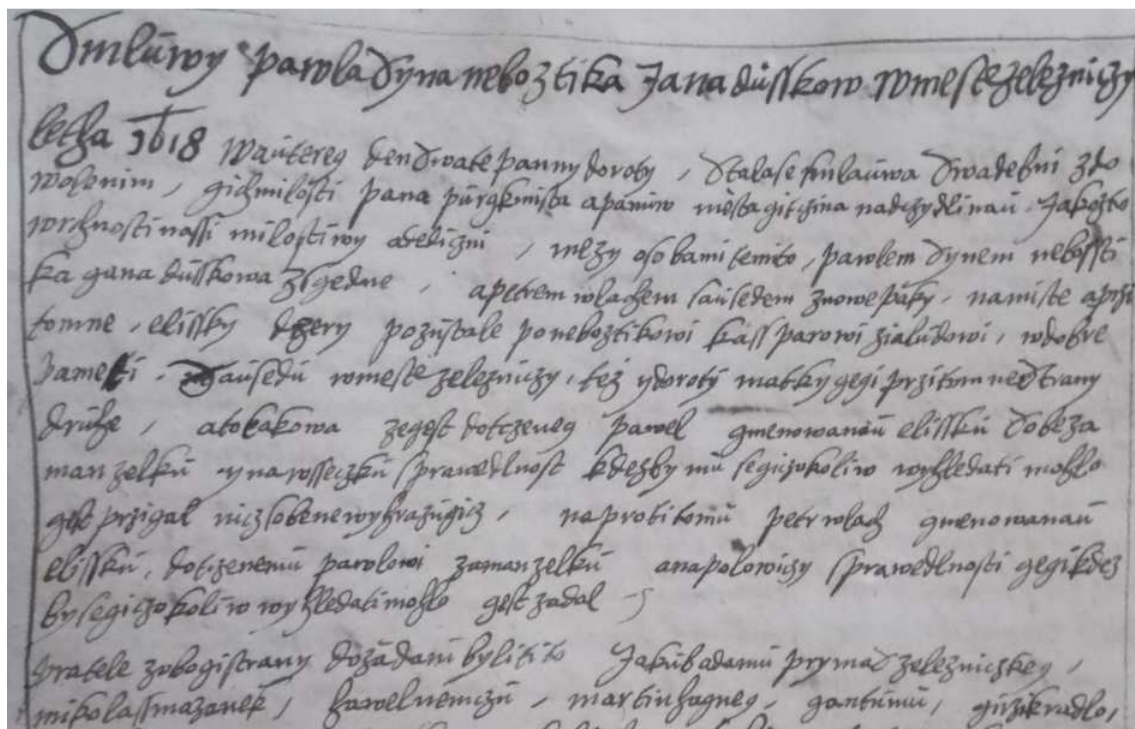 Smluwy pawla Syna neboztika Jana dusskow wmeste zelezniczy
letha 1618 wauterey den Swate panny doroty, Stala se smlauwa Swadebni zdo
wolenim, gich milosti pana purgkmistra a panuw miesta gitczina nad czydlinau Jakozto
wrchnosti nassi milostiwy a dediczni, mezy osobami temito, pawlem Synem nebossti
ka gana dusskowa z gedne, a petrem wlachem sausedem z nowe paky, na miste a przi
tomne, elissky dczery pozustale po neboztikowi kassparowi zialudowi, w dobre
pameti Sausedu w meste zelezniczy, tez y doroty matky gegi przitomne Strany
druhe, a to takowa ze gest dotczeney pawel gmenowanau elissku Sobe za
manzelku y na wsseczku sprawedlnost kdezby mu se giczokoliw wyhledati mohlo
gest przigal nicz sobe newyhrazugicz, naproti tomu petr wlach gmenowanau
elissku, dotczenemu pawlowi za manzelku a na polowiczy sprawedlnosti gegi kdez
by se giczokoliw wyhledati mohlo gest zadal
pratele z obogi strany dozadani byli tito Jakub adamu prymas zelezniczkey,
mikolass mazanek, hawel niemczu, martin hagney, jan tumu, girzik radlo,